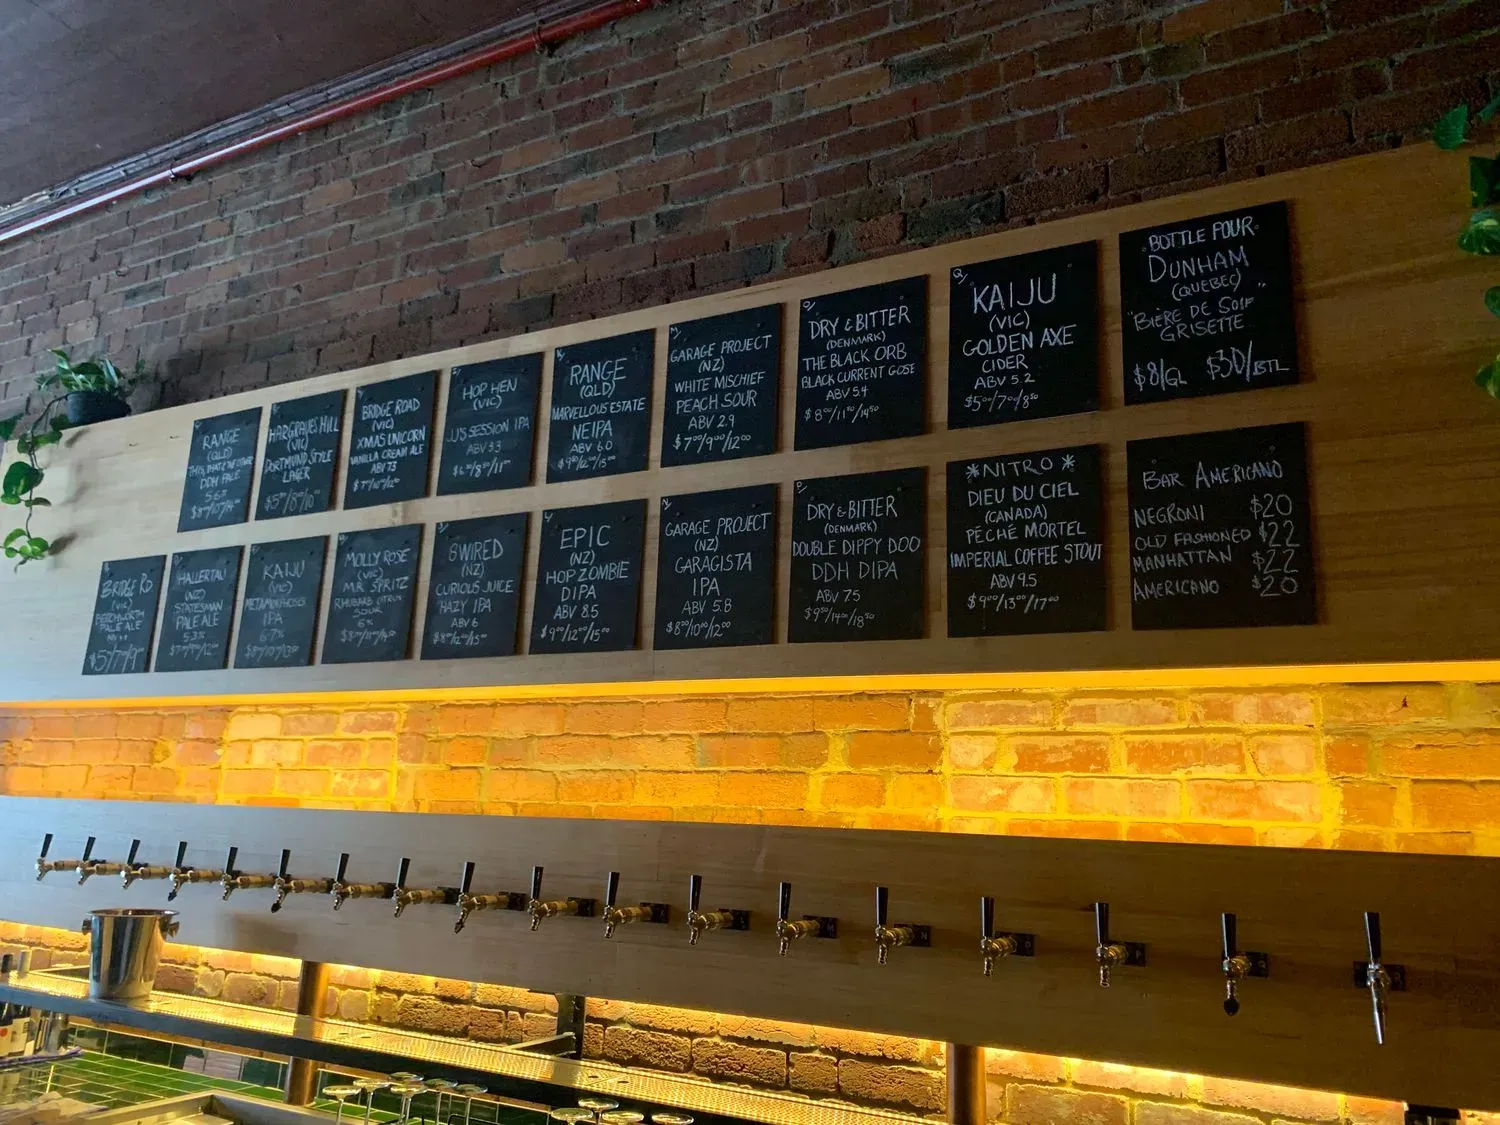 RANGE
(QLD)
DDH PALE
5.6%
HARGRAVES HILL
(VIC)
DORTMUND STYLE
LAGER
BRIDGE ROAD
(VIC)
XMAS UNICORN
VANILLA CREAM ALE
ABV 7.3
$7⁰⁰/10⁰⁰/12⁰⁰
HOP HEN
(VIC)
JJ'S SESSION IPA
ABV 3.3
RANGE
(QLD)
MARVELLOUS ESTATE
NEIPA
ABV 6.0
$9⁰⁰/12⁰⁰/15⁰⁰
GARAGE PROJECT
(NZ)
WHITE MISCHIEF
PEACH SOUR
ABV 2.9
$7⁰⁰/9⁰⁰/12⁰⁰
DRY & BITTER
(DENMARK)
THE BLACK ORB
BLACK CURRENT GOSE
ABV 5.4
$8⁰⁰/11⁵⁰/14⁵⁰
Q/
KAIJU
(VIC)
GOLDEN AXE
CIDER
ABV 5.2
$5⁰⁰/7⁰⁰/8⁵⁰
BOTTLE POUR
DUNHAM
(QUEBEC)
"BIÈRE DE SOIF"
GRISETTE
$8/GL $30/BTL
BRIDGE RD
(VIC)
BEECHWORTH
PALE ALE
HALLERTAU
(NZ)
STATESMAN
PALE ALE
5.3%
KAIJU
(VIC)
METAMORPHOSIS
IPA
6.7%
MOLLY ROSE
(VIC)
MR. SPRITZ
RHUBARB CITRUS
SOUR
6%
8 WIRED
(NZ)
CURIOUS JUICE
HAZY IPA
ABV 6
$8⁰⁰/12⁰⁰/15⁰⁰
EPIC
(NZ)
HOP ZOMBIE
DIPA
ABV 8.5
$9⁰⁰/12⁰⁰/15⁰⁰
GARAGE PROJECT
(NZ)
GARAGISTA
IPA
ABV 5.8
$8⁰⁰/10⁰⁰/12⁰⁰
P/
DRY & BITTER
(DENMARK)
DOUBLE DIPPY DOO
DDH DIPA
ABV 7.5
$9⁵⁰/14⁰⁰/18⁵⁰
*NITRO*
DIEU DU CIEL
(CANADA)
PÉCHÉ MORTEL
IMPERIAL COFFEE STOUT
ABV 9.5
$9⁰⁰/13⁰⁰/17⁰⁰
BAR AMERICANO
NEGRONI $20
OLD FASHIONED $22
MANHATTAN $22
AMERICANO $20